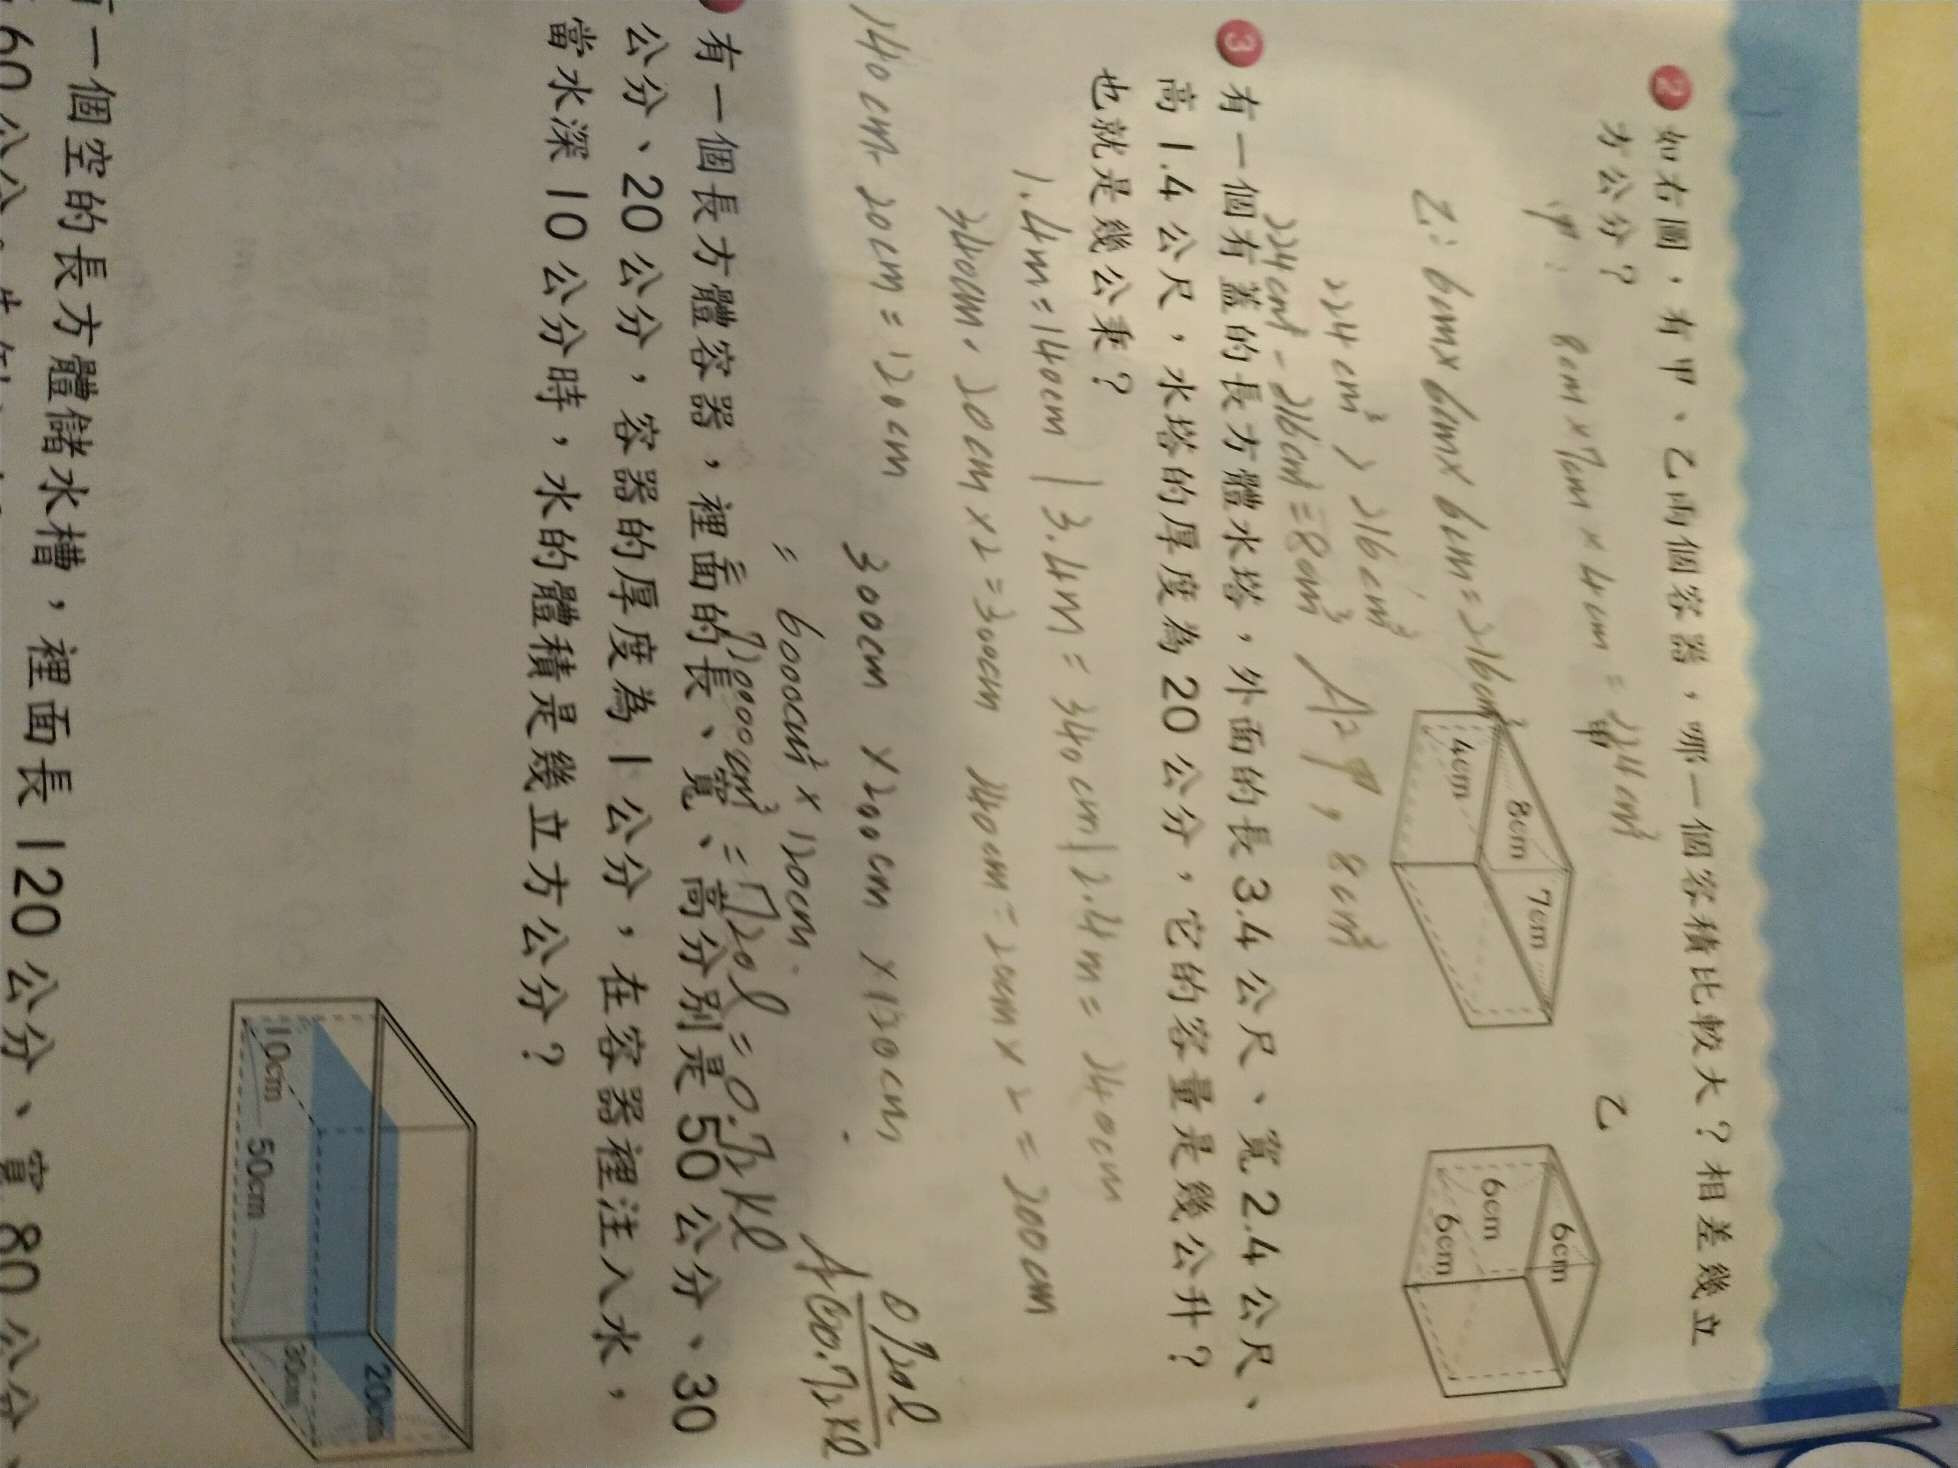 2 如右圖，有甲、乙兩個容器，哪一個容積比較大？相差幾立
方公分？
甲: 8cm×7cm×4cm=224cm³
乙: 6cm×6cm×6cm=216cm³
224cm³ > 216cm³
224cm³-216cm³=8cm³
A:甲，8cm³
甲
8cm
7cm
4cm
乙
6cm
6cm
6cm
3 有一個有蓋的長方體水塔，外面的長3.4公尺、寬2.4公尺、
高1.4公尺，水塔的厚度為20公分，它的容量是幾公升？
也就是幾公秉？
1.4m=140cm | 3.4m=340cm | 2.4m=240cm
340cm-20cm×2=300cm 240cm-20cm×2=200cm
140cm-20cm=120cm 300cm×200cm×120cm
=6000cm²×120cm
=720000cm³=720l=0.72kl
有一個長方體容器，裡面的長、寬、高分別是50公分、30
公分、20公分，容器的厚度為1公分，在容器裡注入水，
當水深10公分時，水的體積是幾立方公分？
10cm
50cm
30cm
20cm
一個空的長方體儲水槽，裡面長120公分、寬80公分、
60公分。